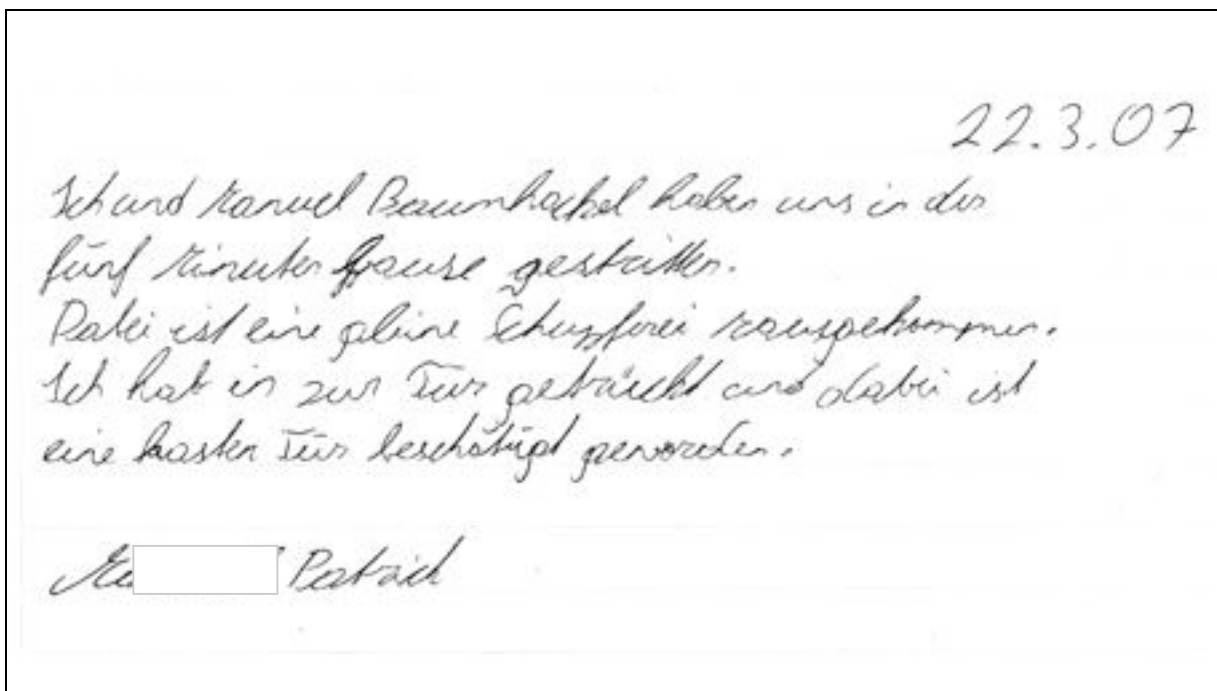 22.3.07
Ich und Manuel Baumhackel haben uns in der
fünf Minuten Pause gestritten.
Dabei ist eine gleine Schupferei rausgekommen.
Ich hab in zur Tür getrückt und dabei ist
eine kasten Tür beschätigt geworden.
Patrick